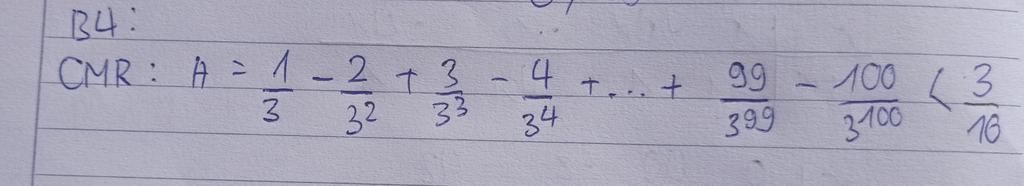 B4:
CMR: A = 1/3 - 2/3² + 3/3³ - 4/3⁴ + ... + 99/3⁹⁹ - 100/3¹⁰⁰ < 3/16